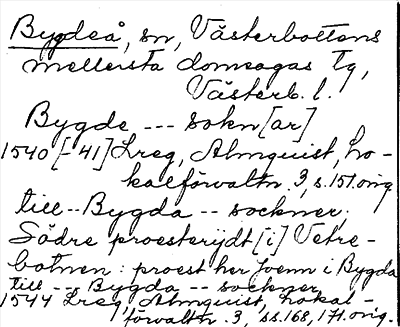 Bygdeå, sn, Västerbottens
mellersta domsagas tg,
Västerb. l.
Bygde --- sokn[ar]
1540 [-41] Lreg, Almquist, Lo-
kalförvaltn. 3, s. 151. orig
till -- Bygda -- sockner;
Södre proesterijdt [i] Vetre-
botnen: proest her Jvenn i Bygda
till --- Bygda -- sockner
1544 Lreg, Almquist, Lokal-
förvaltn. 3, ss. 168, 171. orig.